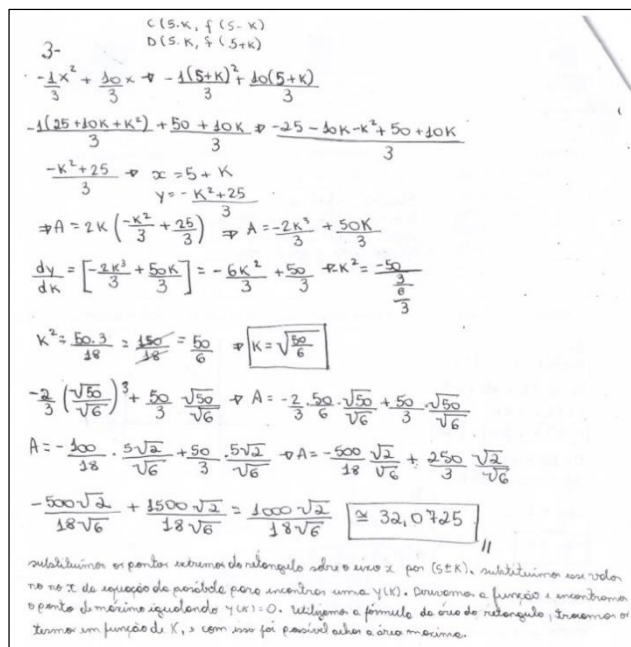 C(5-K, f(5-K)
D(5-K, f(5+K)
3-
-1/3 x² + 10/3 x ⇒ -1(5+K)²/3 + 10(5+K)/3
-1(25+10K+K²)/3 + 50+10K/3 ⇒ -25-10K-K²+50+10K/3
-K²+25/3 ⇒ x=5+K
y=-K²+25/3
⇒ A=2K(-K²/3 + 25/3) ⇒ A=-2K³/3 + 50K/3
dy/dK = [-2K³/3 + 50K/3] = -6K²/3 + 50/3 ⇒ K² = -50/3/6/3
K² = 50.3/18 = 150/18 = 50/6 ⇒ K=√50/6
-2/3 (√50/√6)³ + 50/3 √50/√6 ⇒ A=-2/3 . 50/6 . √50/√6 + 50/3 . √50/√6
A=-100/18 . 5√2/√6 + 50/3 . 5√2/√6 ⇒ A=-500/18 √2/√6 + 250/3 √2/√6
-500√2/18√6 + 1500√2/18√6 = 1000√2/18√6 ≅ 32,0725 //
substituimos os pontos extremos do retangulo sobre o eixo x por (5±K), substituimos esse valor
no no x da equação da parábola para encontrar uma y(K). Derivamos a função e encontramos
o ponto de máximo igualando y(K)=0. Utilizamos a fórmula da área do retangulo, trocamos os
termos em função de K, e com isso foi possível achar a área maxima.